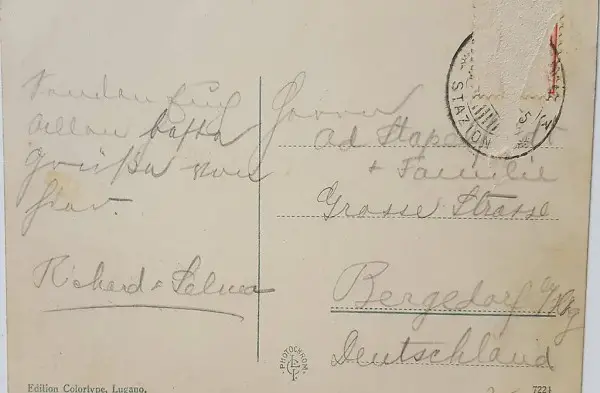 Senden Euch
allen beste
Grüße von
hier.
Richard & Selma
Herrn
Ad
& Familie
Grosse Strasse
Bergedorf b/Hbg
Deutschland
STAZION
PHOTOCHROM
Edition Colortype, Lugano.
7224